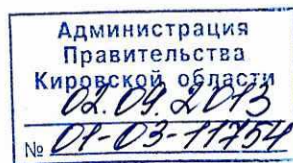 Администрация
Правительства
Кировской области
02.09.2013
№ 01-03-11754